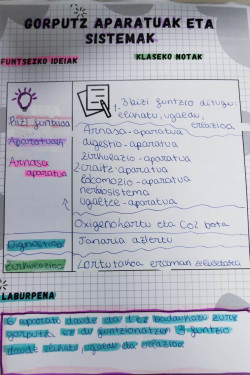 GORPUTZ APARATUAK ETA
SISTEMAK
FUNTSEZKO IDEIAK
KLASEKO NOTAK
3 bizi funtzio ditugu:
elikatu, ugaldu,
erlazioa
Bizi funtzioa
Aparatuak
Arnasa
aparatua
Arnasa-aparatua
digestio-aparatua
zirkulazio-aparatua
iraitz-aparatua
lokomozio-aparatua
nerbiosistema
ugaltze-aparatua
Oxigeno hartu eta CO2 bota
Digestioa
Janaria
zirkulazioa
Lortutakoa eraman zeluletara
LABURPENA
6 aparatu daude eta 1 ez badaukazu zure
gorputza ez du funtzionatzen 3 funtzio
daude elikatu, ugaldu eta erlazioa